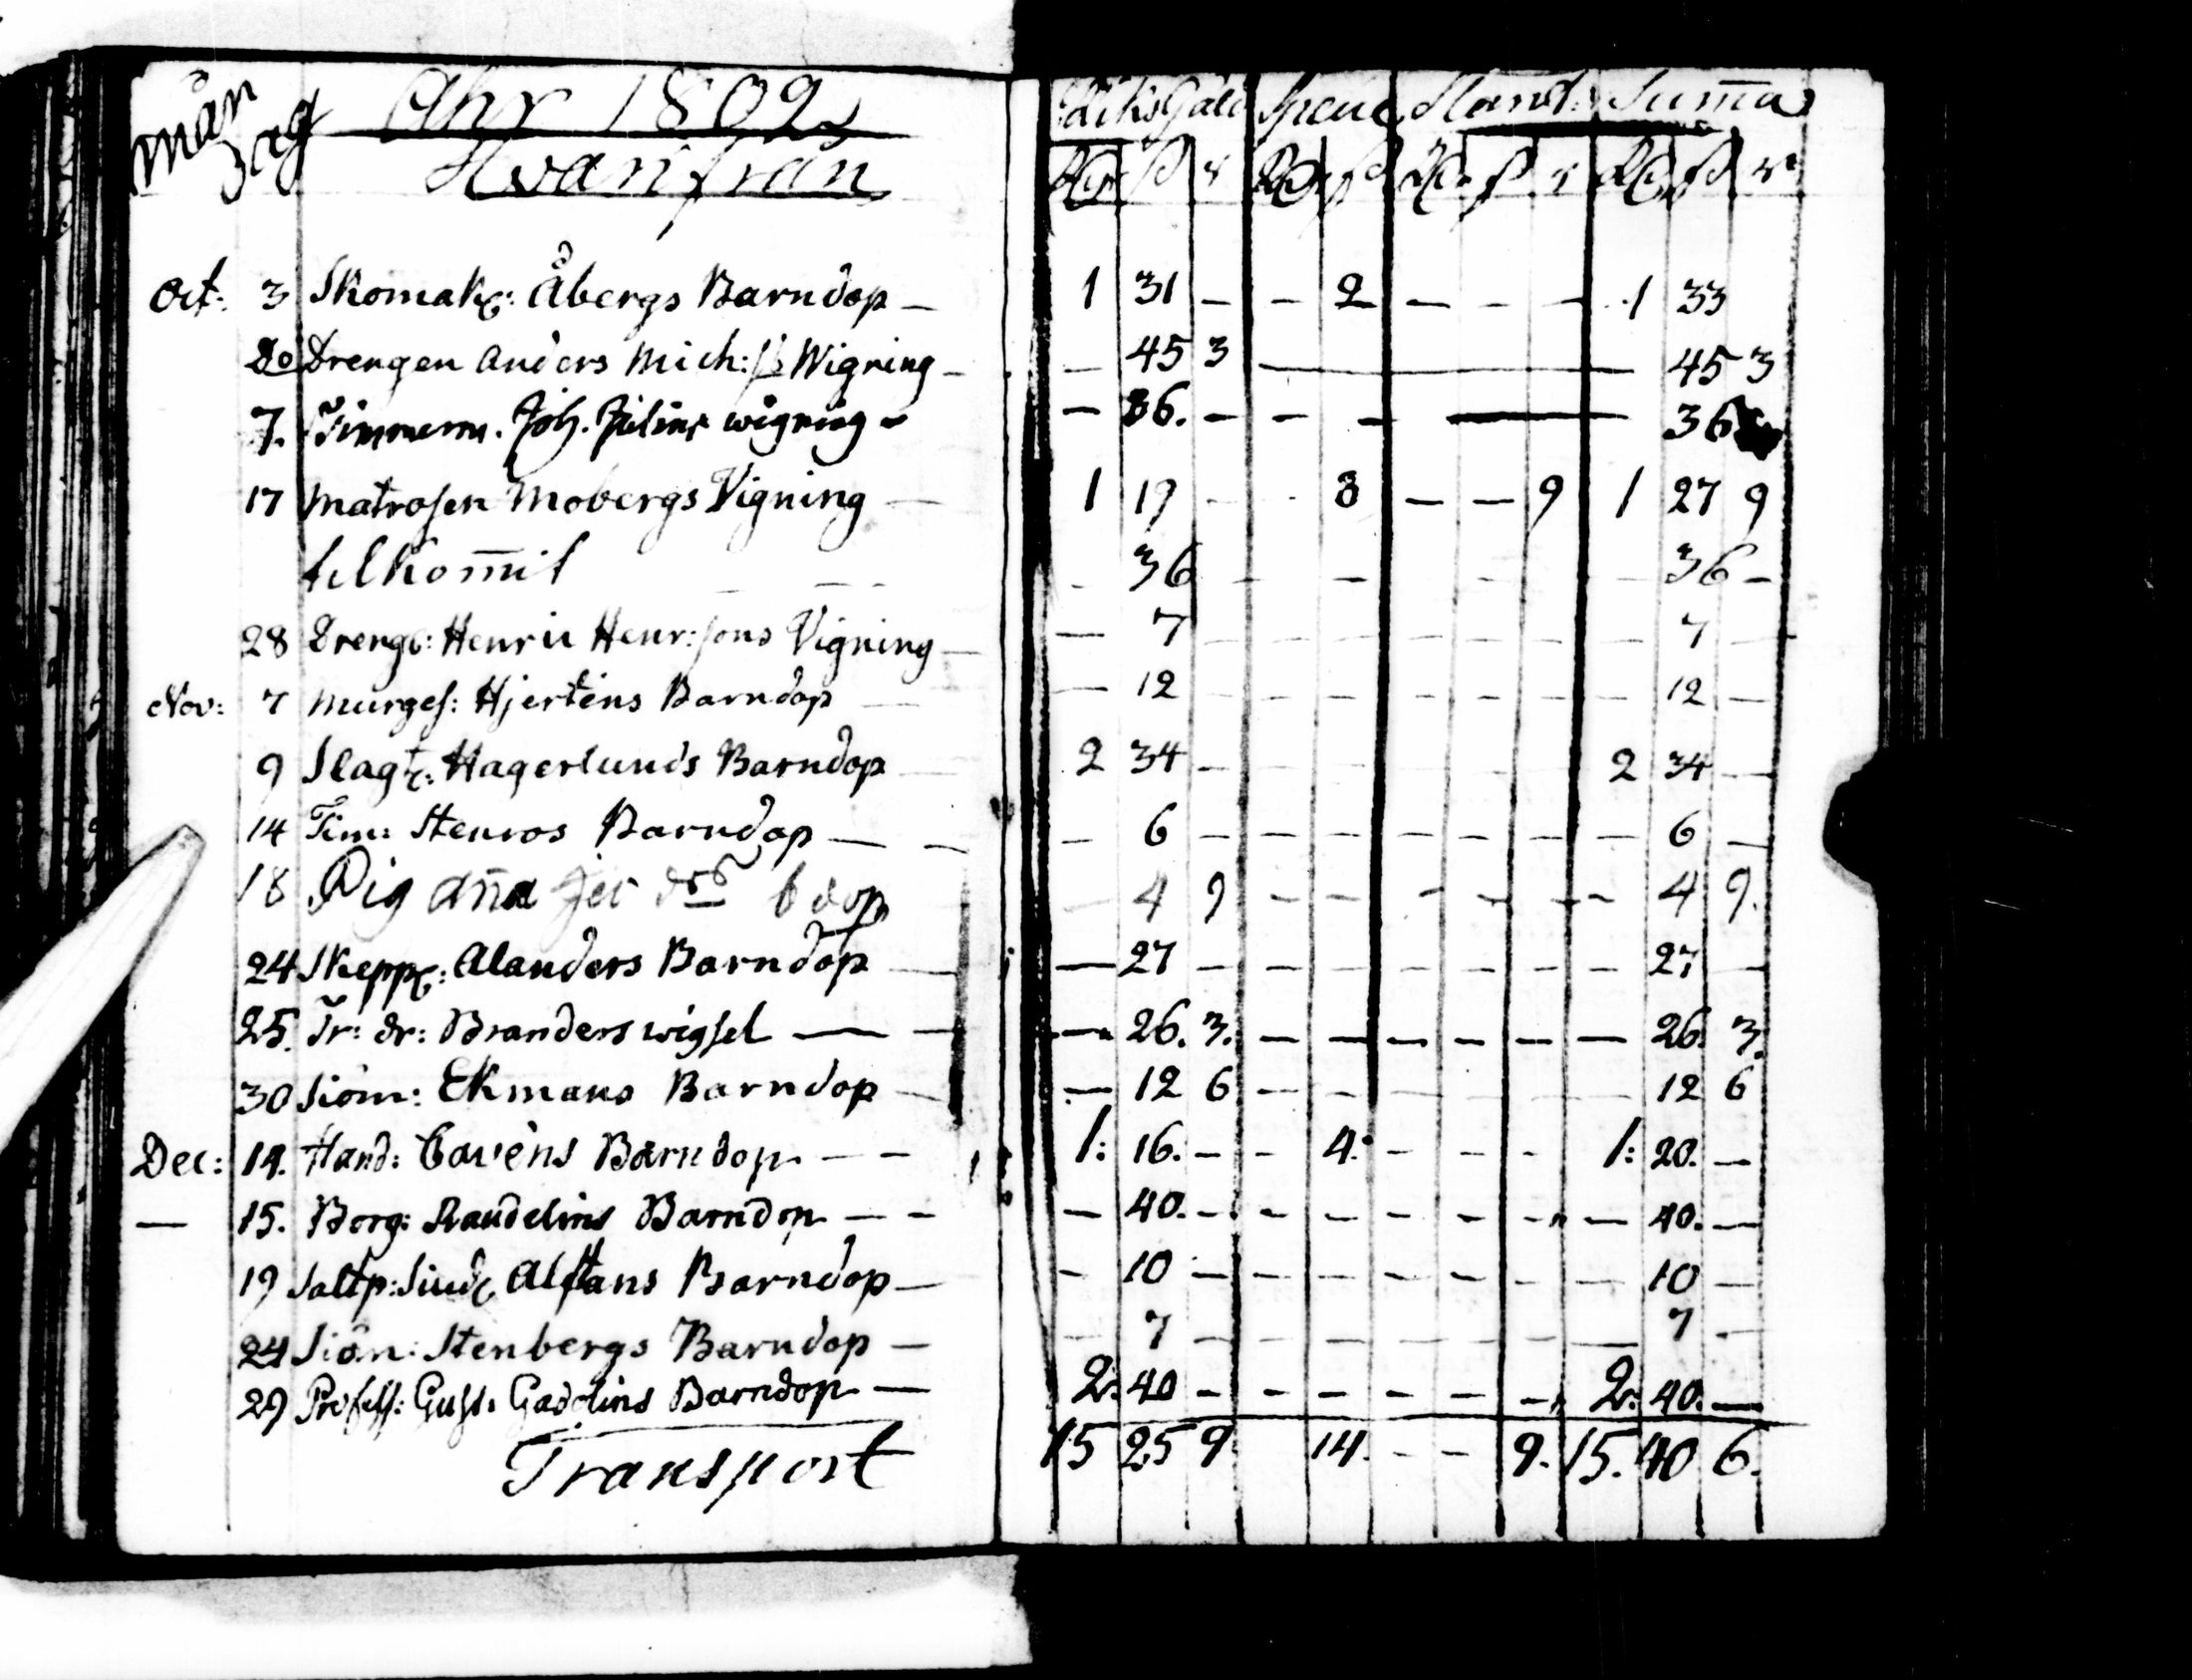 Månd dag Åhr 1802 RiksGäld Specie Slant: Suma
Hvarifrån Rdr ß r Rdr ß Rdr ß r Rdr ß r
Oct: 3 Skomak: Åbergs Barndop — 1 31 — — 2 — — — 1 33
Do Drengen Anders Mich:ss Wigning — — 45 3 — 45 3
7. Timmerm. Joh. wigning — — 36. — — — — 36
17 Matrosen Mobergs Vigning — 1 19 - - 8 — — 9 1 27 9
tilkomit — — - 36 - - - - 36 -
28 Dreng: Henric Henr:sons Vigning — — 7 - - - - - - - 7 —
Nov: 7 Murges: Hjerténs Barndop — — 12 - - - - - - - 12 —
9 Slagt: Hagerlunds Barndop — 2 34 - - - - - - 2 34 —
14 Tim: Stenros Barndop — — - 6 - - - - - - - 6 —
18 Pig Ana b dop — 4 9 - - - - - - 4 9.
24 Skepp: Alanders Barndop — — 27 - - - - - - - 27 —
25. Tr: dr: Branders wigsel — — — 26. 3. — — — — — — 26. 3.
30 Siöm: Ekmans Barndop — — 12 6 - - - - - - 12 6
Dec: 14. Hand: Cavéns Barndop — — 1: 16. — - 4. - - - 1: 20. —
— 15. Borg: Randelins Barndop — — — 40. - - - - - - — 40. —
19 Saltp: Siud: Alftans Barndop — - 10 — - - - - - - 10 —
24 Siöm: Stenbergs Barndop — - 7 - - - - - - — 7 —
29 Profess: Gust: Gadolins Barndop — 2. 40 - - - - - - 2. 40. —
Transport 15 25 9 14. - - 9. 15. 40 6.